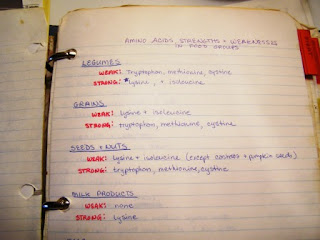 AMINO ACIDS, STRENGTHS + WEAKNESSES
IN FOOD GROUPS
LEGUMES
WEAK: Tryptophan, methionine, cystine
STRONG: *lysine, + isoleucine
GRAINS
WEAK: lysine + isoleucine
STRONG: tryptophan, methionine, cystine
SEEDS + NUTS
WEAK: lysine + isoleucine (except cashews + pumpkin seeds)
STRONG: tryptophan, methionine, cystine
MILK PRODUCTS
WEAK: none
STRONG: Lysine